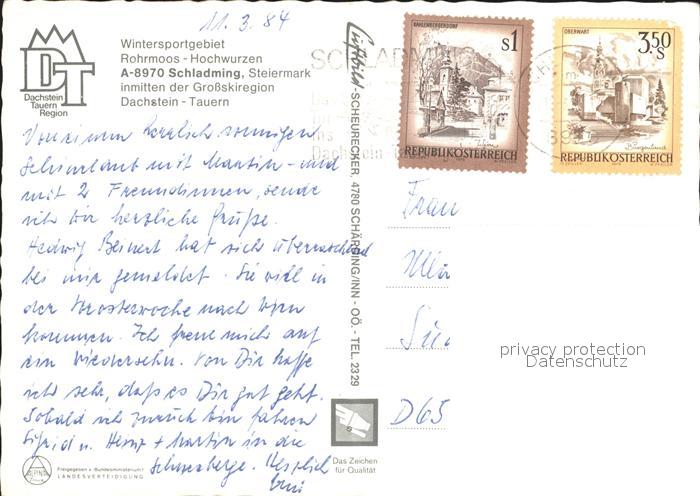 11.3.84
Wintersportgebiet
Rohrmoos - Hochwurzen
A-8970 Schladming, Steiermark
inmitten der Großskiregion
Dachstein - Tauern
DT
Dachstein
Tauern
Region
Von einem herzlich sonnigen
Schiurlaub mit Martin - und
mit 2 Freundinnen, sende
ich Dir herzliche Grüße.
Hedwig Beinert hat sich überraschend
bei mir gemeldet. Sie will in
der Osterwoche nach Wien
kommen. Ich freue mich auf
ein Wiedersehn. Von Dir hoffe
ich sehr, daß es Dir gut geht.
Sobald ich zurück bin fahren
Sigrid u. Heinz + Martin in die
Schneeberge. Herzlich
Freigegeben v. Bundesministerium f.
LANDESVERTEIDIGUNG
Luftbild-SCHEURECKER, 4780 SCHÄRDING/INN - OÖ. - TEL. 2329
Das Zeichen
für Qualität
KAHLENBERGERDORF
S1
Wien
REPUBLIK ÖSTERREICH
OBERWART
3.50
S
Burgenland
REPUBLIK ÖSTERREICH
SCHLADMING
Dachstein-Ta
Frau
D65
privacy protection
Datenschutz